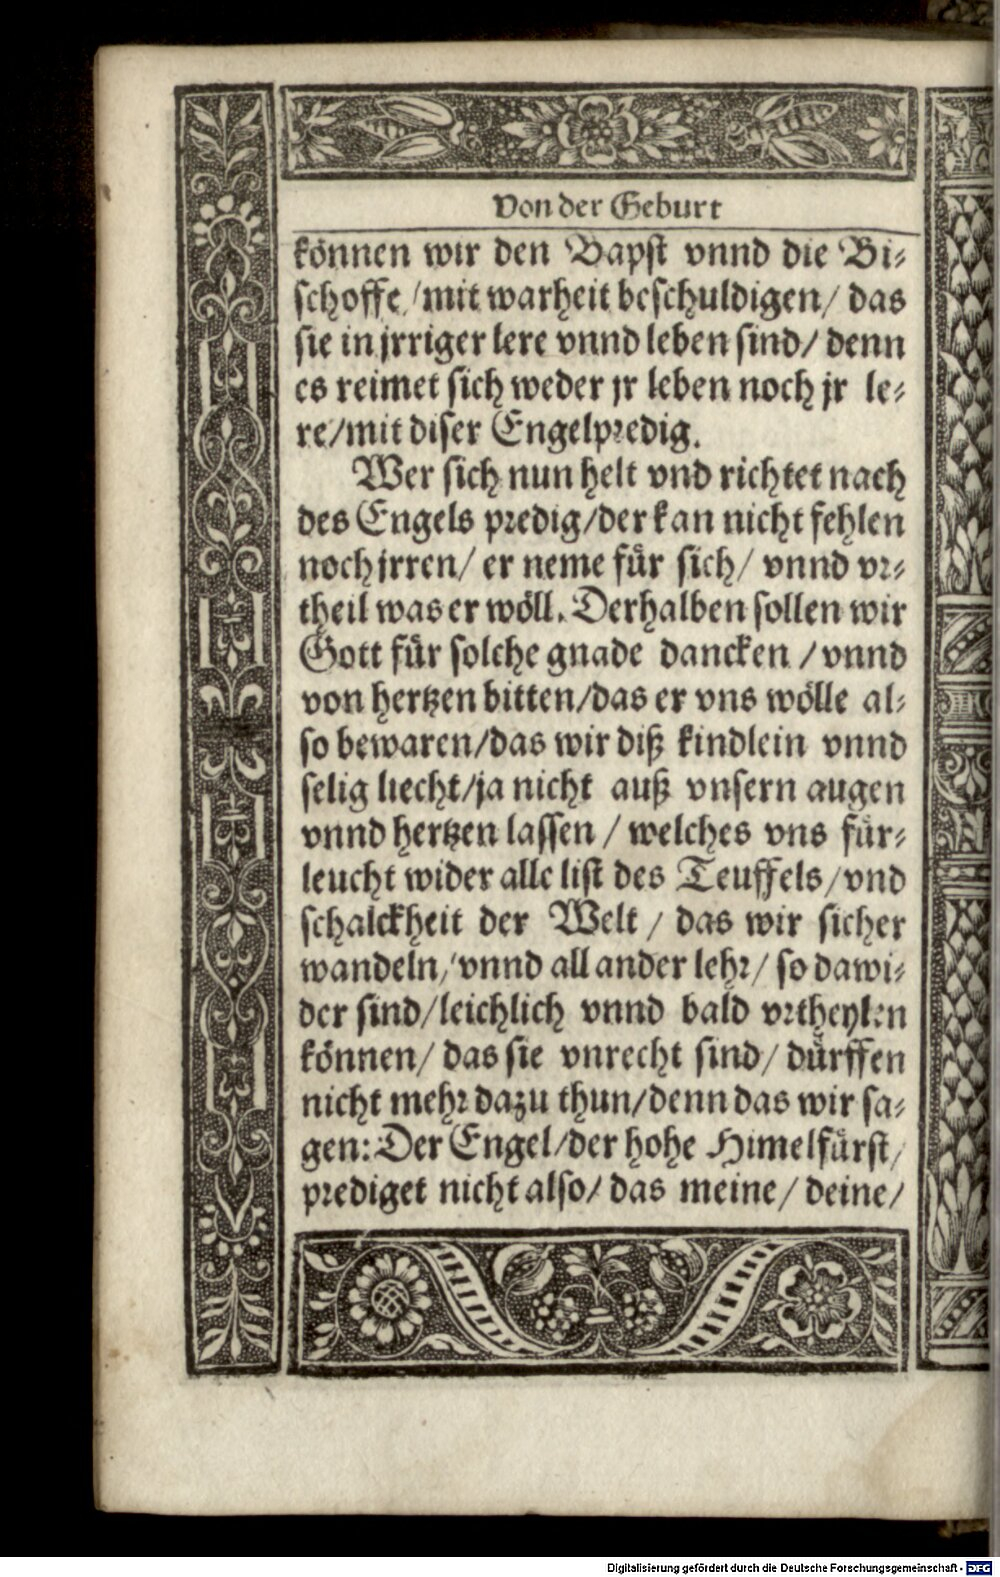 Von der Geburt
können wir den Bapst vnnd die Bi-
schoffe / mit warheit beschuldigen / das
sie in jrriger lere vnnd leben sind / denn
es reimet sich weder jr leben noch jr le-
re / mit diser Engelpredig.
Wer sich nun helt vnd richtet nach
des Engels predig / der kan nicht fehlen
noch jrren / er neme für sich / vnnd vr-
theil was er wöll. Derhalben sollen wir
Gott für solche gnade dancken / vnnd
von hertzen bitten / das er vns wölle al-
so bewaren / das wir diß kindlein vnnd
selig liecht / ja nicht auß vnsern augen
vnnd hertzen lassen / welches vns für-
leucht wider alle list des Teuffels / vnd
schalckheit der Welt / das wir sicher
wandeln / vnnd all ander lehr / so dawi-
der sind / leichlich vnnd bald vrtheylen
können / das sie vnrecht sind / dürffen
nicht mehr dazu thun / denn das wir sa-
gen: Der Engel / der hohe Himelfürst /
prediget nicht also / das meine / deine /
Digitalisierung gefördert durch die Deutsche Forschungsgemeinschaft - DFG